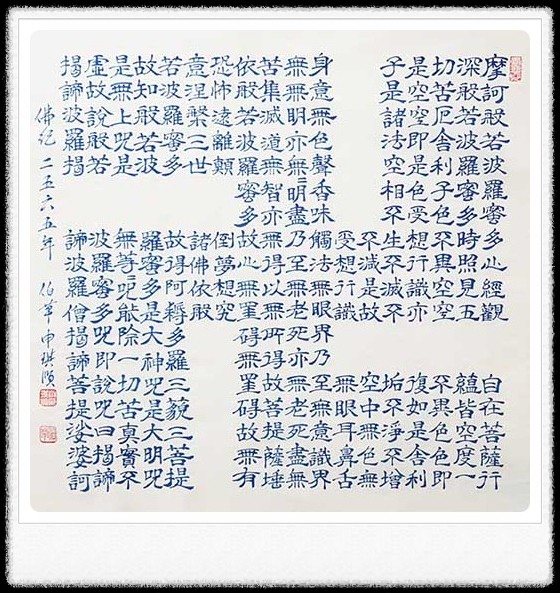 摩訶般若波羅蜜多心經觀自在菩薩行
深般若波羅蜜多時照見五蘊皆空度一
切苦厄舍利子色不異空空不異色色即
是空空即是色受想行識亦復如是舍利
子是諸法空相不生不滅不垢不淨不增
不減是故空中無色無
受想行識無眼耳鼻舌
身意無色聲香味觸法無眼界乃至無意識界
無無明亦無無明盡乃至無老死亦無老死盡無
苦集滅道無智亦無得以無所得故菩提薩埵
依般若波羅蜜多故心無罣礙無罣礙故無有
恐怖遠離顛倒夢想究
意涅槃三世諸佛依般
若波羅蜜多故得阿耨多羅三藐三菩提
故知般若波羅蜜多是大神呪是大明呪
是無上呪是無等=呪能除一切苦真實不
虛故說般若波羅蜜多呪即說呪曰揭諦
揭諦波羅揭諦波羅僧揭諦菩提娑婆訶
佛紀二五六五年 伯華申琪